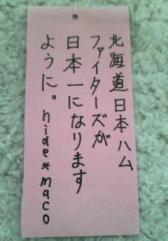 北海道日本ハム
ファイターズが
日本一になります
ように。hide*maco